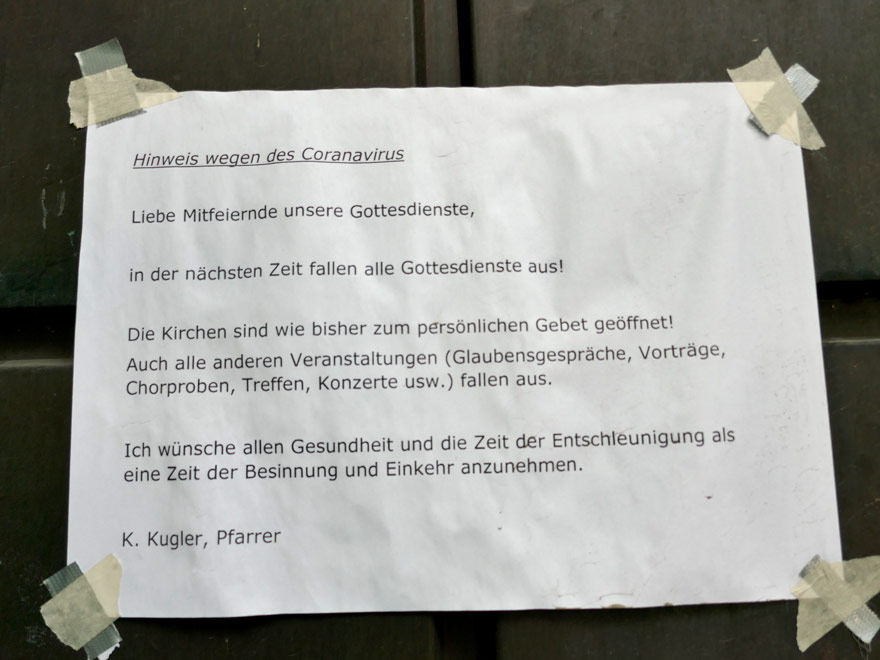 Hinweis wegen des Coranavirus
Liebe Mitfeiernde unsere Gottesdienste,
in der nächsten Zeit fallen alle Gottesdienste aus!
Die Kirchen sind wie bisher zum persönlichen Gebet geöffnet!
Auch alle anderen Veranstaltungen (Glaubensgespräche, Vorträge,
Chorproben, Treffen, Konzerte usw.) fallen aus.
Ich wünsche allen Gesundheit und die Zeit der Entschleunigung als
eine Zeit der Besinnung und Einkehr anzunehmen.
K. Kugler, Pfarrer